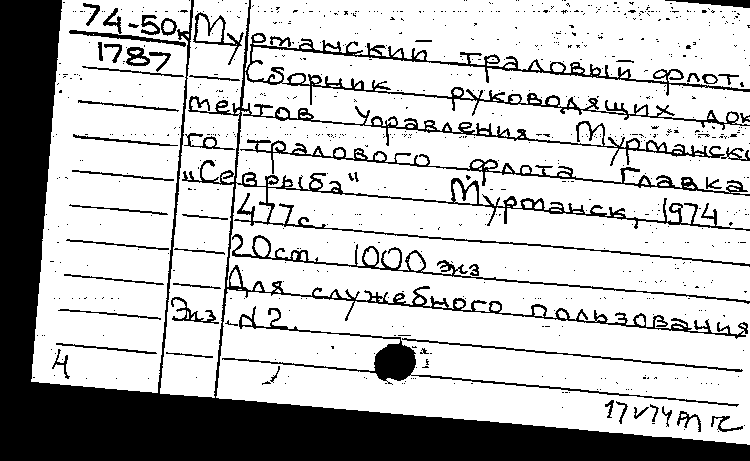 74-50к Мурманский траловый флот.
1787
Сборник руководящих док
ментов Управления Мурманско
го тралового флота Главка
„Севрыба" Мурманск, 1974.
477с.
20см. 1000 экз
Для служебного пользования
Экз. N2.
4